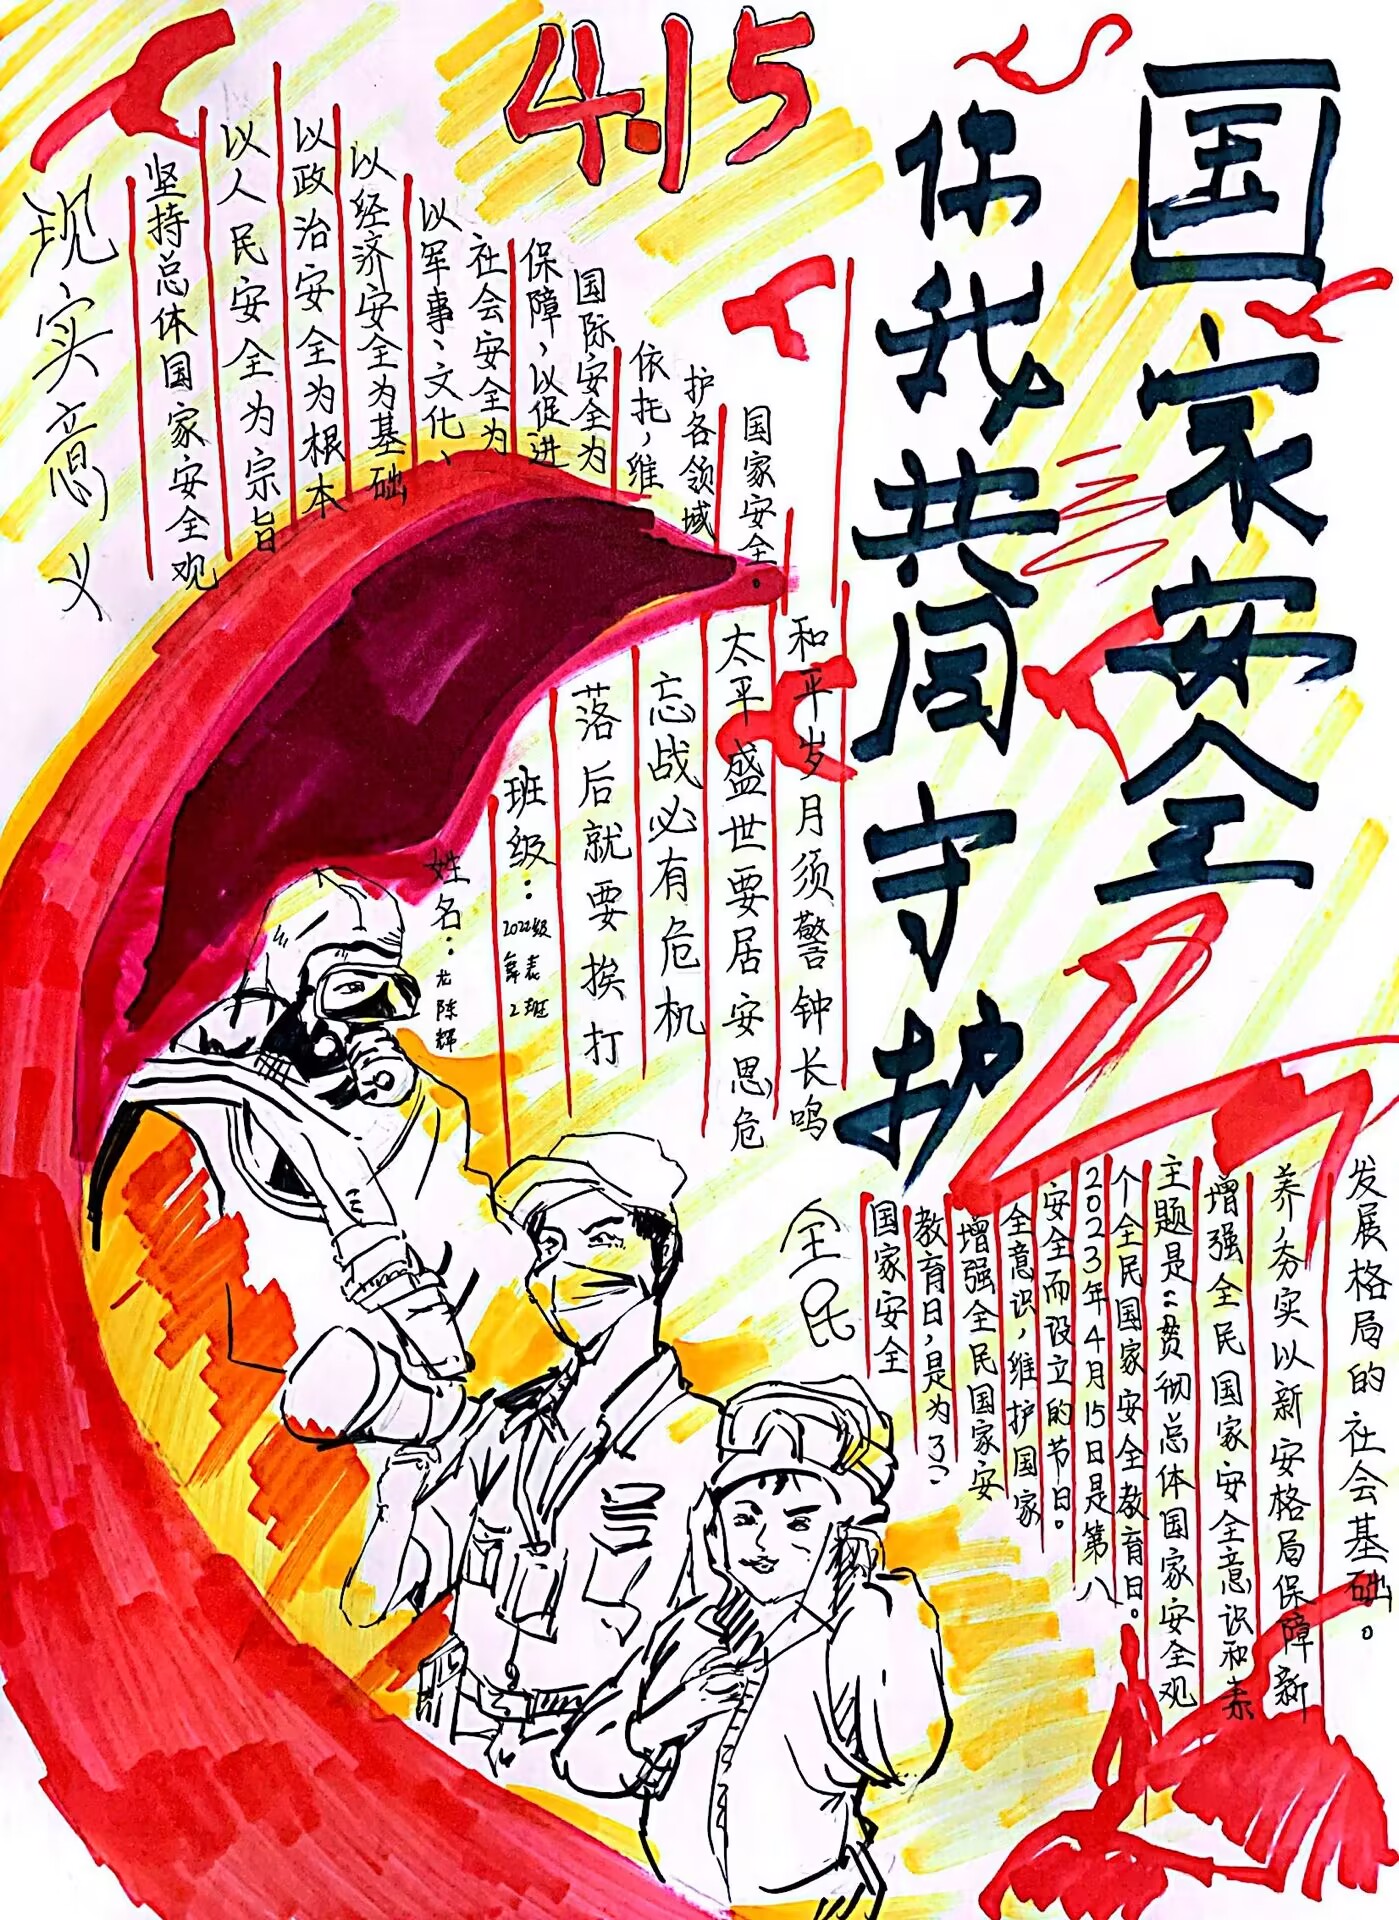 4.15
国家安全
你我共同守护
现实意义
坚持总体国家安全观
以人民安全为宗旨
以政治安全为根本
以经济安全为基础
以军事、文化、
社会安全为
保障，以促进
国际安全为
依托，维
护各领域
国家安全。
和平岁月须警钟长鸣
太平盛世要居安思危
忘战必有危机
落后就要挨打
班级：2022级
舞表
2班
姓名：龙陈辉
全民
国家安全
教育日，是为了
增强全民国家安
全意识，维护国家
安全而设立的节日。
2023年4月15日是第八
个全民国家安全教育日。
主题是：“贯彻总体国家安全观
增强全民国家安全意识和素
养，夯实以新安格局保障新
发展格局的社会基础。